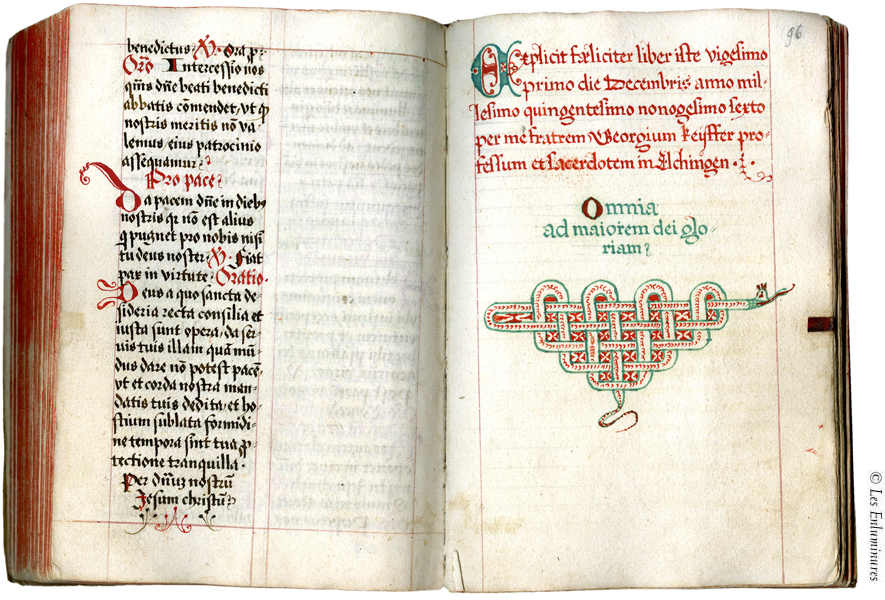 benedictus. V. Ora p̱.
Or̄o Intercessio nos
qm̄s dn̄e beati benedicti
abbatis cōmendet, ut q̱
nostris meritis nō va-
lemus, eius patrocinio
assequamur.
Pro pace.
Da pacem dn̄e in dieb9
nostris qr nō est alius
q̱ pugnet pro nobis nisi
tu deus noster. V. Fiat
pax in virtute. Oratio.
Deus a quo sancta de-
sideria recta consilia et
iusta sunt opera, da ser-
vis tuis illam quā mū-
dus dare nō potest pacē
vt et corda nostra man-
datis tuis dedita, et ho-
stium sublata formidi-
ne tempora sint tua p̱-
tectione tranquilla.
Per dn̄uȝ nostrū
Jesum christū
96
Explicit fæliciter liber iste vigesimo
primo die Decembris anno mil-
lesimo quingentesimo nonogesimo sexto
per me fratrem Georgium Keysser pro-
fessum et sacerdotem in Elchingen.
Omnia
ad maiorem dei glo-
riam
© Les Enluminures